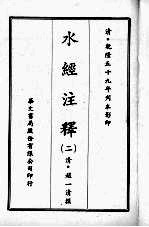 清·乾隆五十九年刊本影印
水經注釋
(二)
清·趙一清撰
華文書局股份有限公司印行